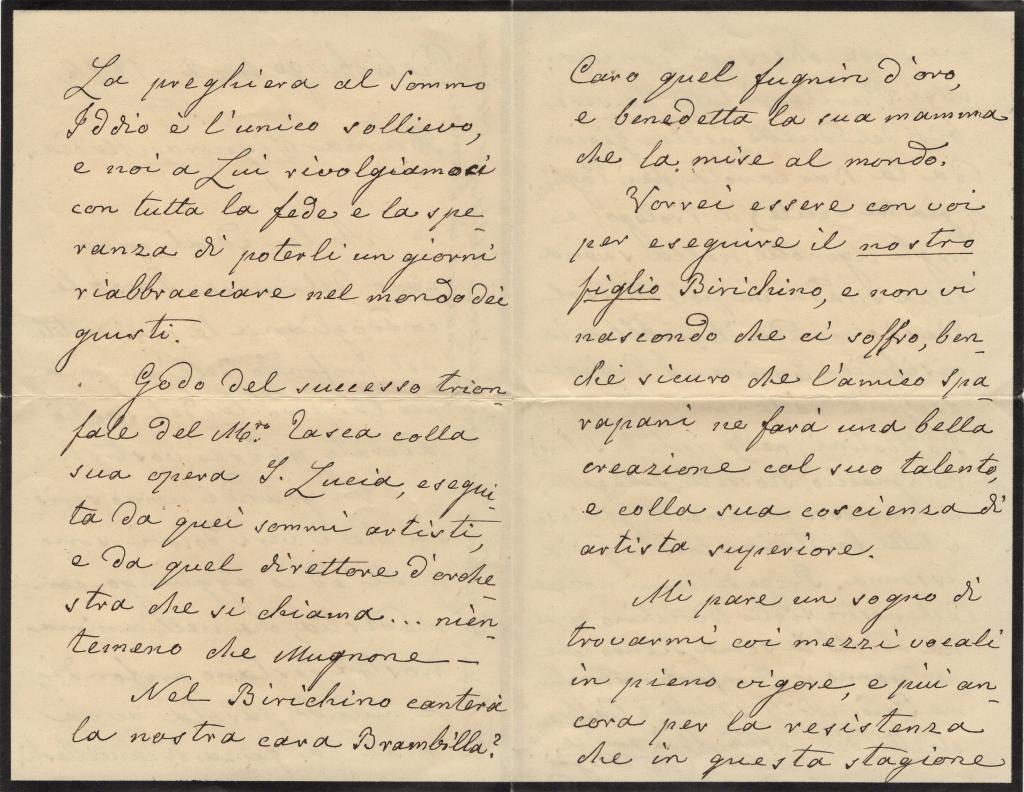 La preghiera al Sommo
Iddio è l'unico sollievo,
e noi a Lui rivolgiamoci
con tutta la fede e la spe-
ranza di poterli un giorni
riabbracciare nel mondo dei
giusti.
Godo del successo trion-
fale del M.ro Tasca colla
sua opera S. Lucia, esegui-
ta da quei sommi artisti,
e da quel direttore d'orche-
stra che si chiama... nien-
temeno che Mugnone —
Nel Birichino canterà
la nostra cara Brambilla?
Caro quel fugnin d'oro,
e benedetta la sua mamma
che la mise al mondo.
Vorrei essere con voi
per eseguire il nostro
figlio Birichino, e non vi
nascondo che ci soffro, ben-
chè sicuro che l'amico Spa-
rapani ne farà una bella
creazione col suo talento,
e colla sua coscienza di
artista superiore.
Mi pare un sogno di
trovarmi coi mezzi vocali
in pieno vigore, e più an-
cora per la resistenza
che in questa stagione